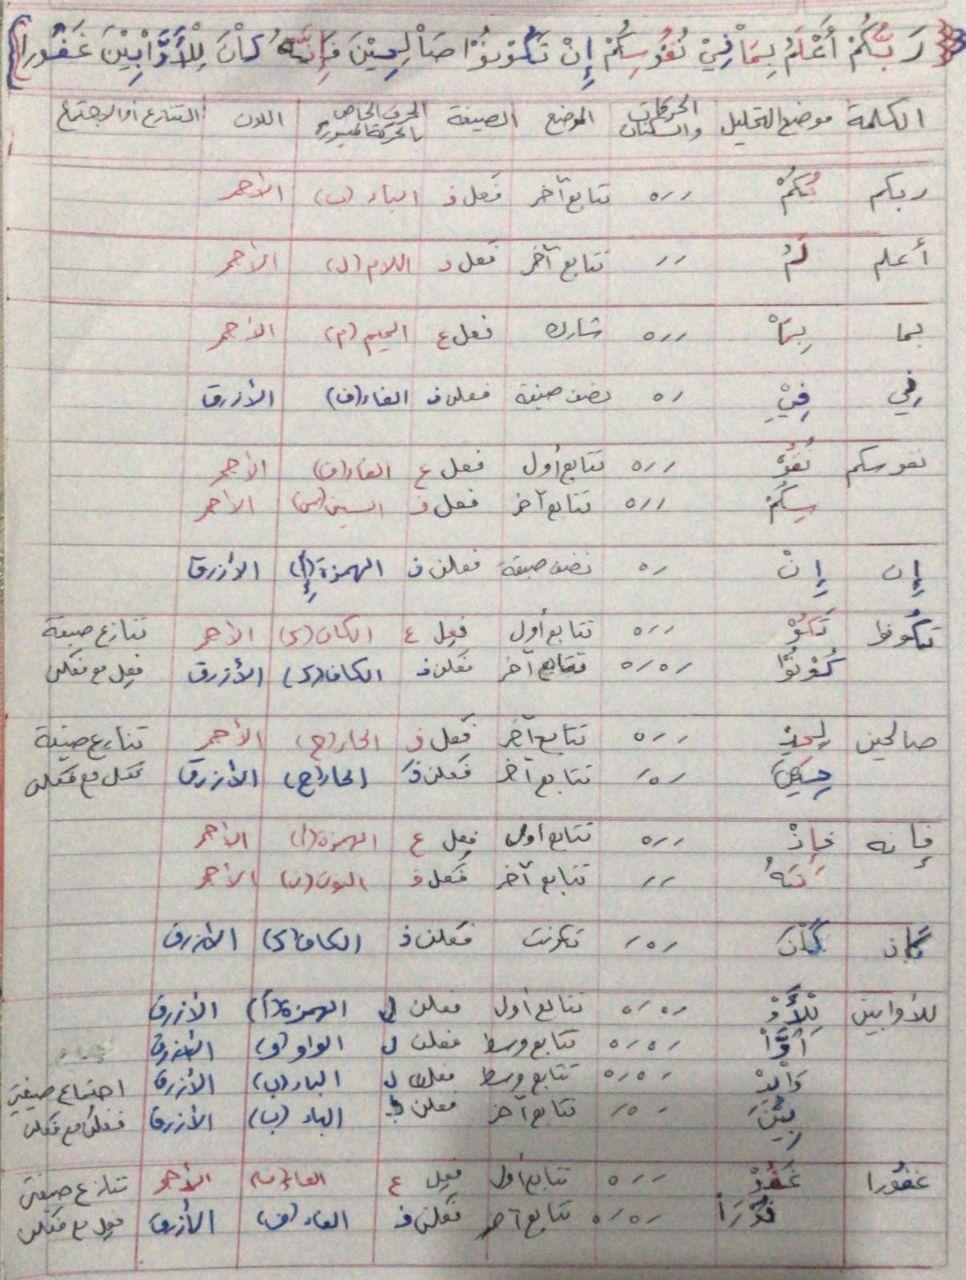 رَبُّكُمْ أَعْلَمُ بِمَاْ فِيْ نُفُوْسِكُمْ إِنْ تَكُوْنُوْا صَاْلِحِيْنَ فَإِنَّهُ كَاْنَ لِلْأَوَّاْبِيْنَ غَفُوْراً
الكلمة موضع التحليل الحركات والسكنات الموضع الصيغة الحرف الخاص بالحركة اللون التنازع أو الاجتماع
ربكم بُكُمْ //ه تتابع آخر فعل ف الباء (ب) الأحمر
أعلم لَمُ // تتابع آخر فعل ف اللام (ل) الأحمر
بما بِمَاْ //ه فعل ع الميم (م) الأحمر
في فِيْ /ه نصف صيغة فعلن ف الفاء (ف) الأزرق
نفوسكم نُفُوْ //ه تتابع أول فعل ع الفاء (ف) الأحمر
سِكُمْ //ه تتابع آخر فعل ف السين (س) الأحمر
إن إِنْ /ه نصف صيغة فعلن ف الهمزة (إ) الأزرق
تكونوا تَكُوْ //ه تتابع أول فعل ع الكاف (ك) الأحمر تنازع صيغة
كُوْنُوْا /ه/ه تتابع آخر فعلن ف الكاف (ك) الأزرق فعل مع فعلن
صالحين لِحِيْ //ه تتابع آخر فعل ف الحاء (ح) الأحمر تنازع صيغة
حِيْنَ /ه/ تتابع آخر فعلن ف الحاء (ح) الأزرق فعل مع فعلن
فإنه فَإِنْ //ه تتابع أول فعل ع الهمزة (إ) الأحمر
نَهُ // تتابع آخر فعل ف النون (ن) الأحمر
كان كَاْنَ /ه/ فعلن ف الكاف (ك) الأزرق
للأوابين لِلْأَوْ /ه/ه تتابع أول فعلن ل الهمزة (أ) الأزرق
أَوَّاْ /ه/ه تتابع وسط فعلن ل الواو (و) الأزرق
وَاْبِيْ /ه/ه تتابع وسط فعلن ل الباء (ب) الأزرق اجتماع صيغتي
بِيْنَ /ه/ تتابع آخر فعلن ف الباء (ب) الأزرق فعلن مع فعلن
غفورا غَفُوْ //ه تتابع أول فعل ع الفاء (ف) الأحمر تنازع صيغتي
فُوْرَاً /ه/ه تتابع آخر فعلن ف الفاء (ف) الأزرق فعل مع فعلن